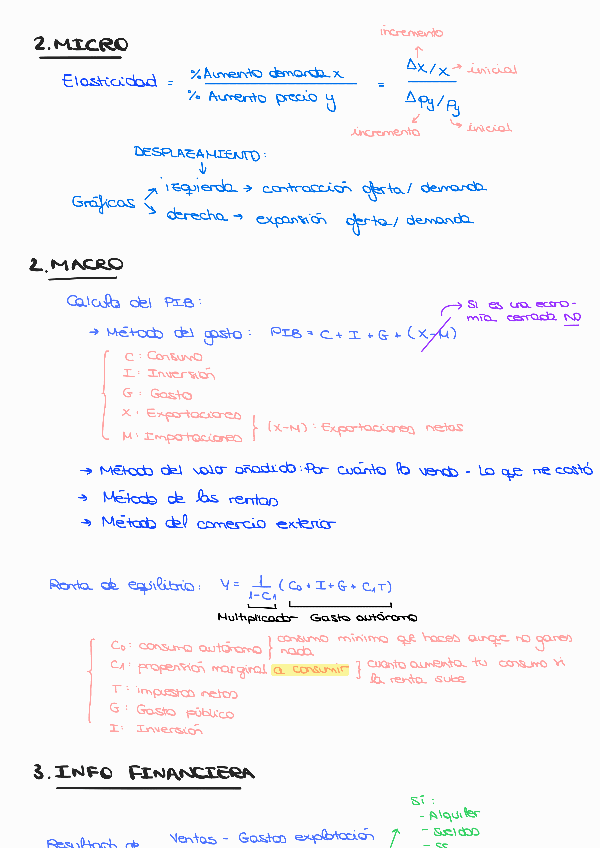 incremento
2. MICRO
Elasticidad = % Aumento demanda x / % Aumento precio y = Δx/x → inicial / Δpy/py
incremento inicial
DESPLAZAMIENTO:
Gráficas
izquierda → contracción oferta / demanda
derecha → expansión oferta / demanda
2. MACRO
Calculo del PIB:
Si es una econo-
mía cerrada NO
→ Método del gasto: PIB = C + I + G + (X-M)
C: Consumo
I: Inversión
G: Gasto
X: Exportaciones
M: Importaciones
(X-M): Exportaciones netas
→ Método del valor añadido: Por cuánto lo vendo - lo que me costó
→ Método de las rentas
→ Método del comercio exterior
Renta de equilibrio: Y = 1/1-C1 (C0 + I + G + C1T)
Multiplicador Gasto autónomo
C0: consumo autónomo } consumo mínimo que haces aunque no ganes
nada
C1: propensión marginal a consumir ] cuanto aumenta tu consumo si
la renta sube
T: impuestos netos
G: Gasto público
I: Inversión
3. INFO FINANCIERA
Sí:
- Alquiler
- Sueldos
- SS
Resultado de Ventas - Gastos explotación